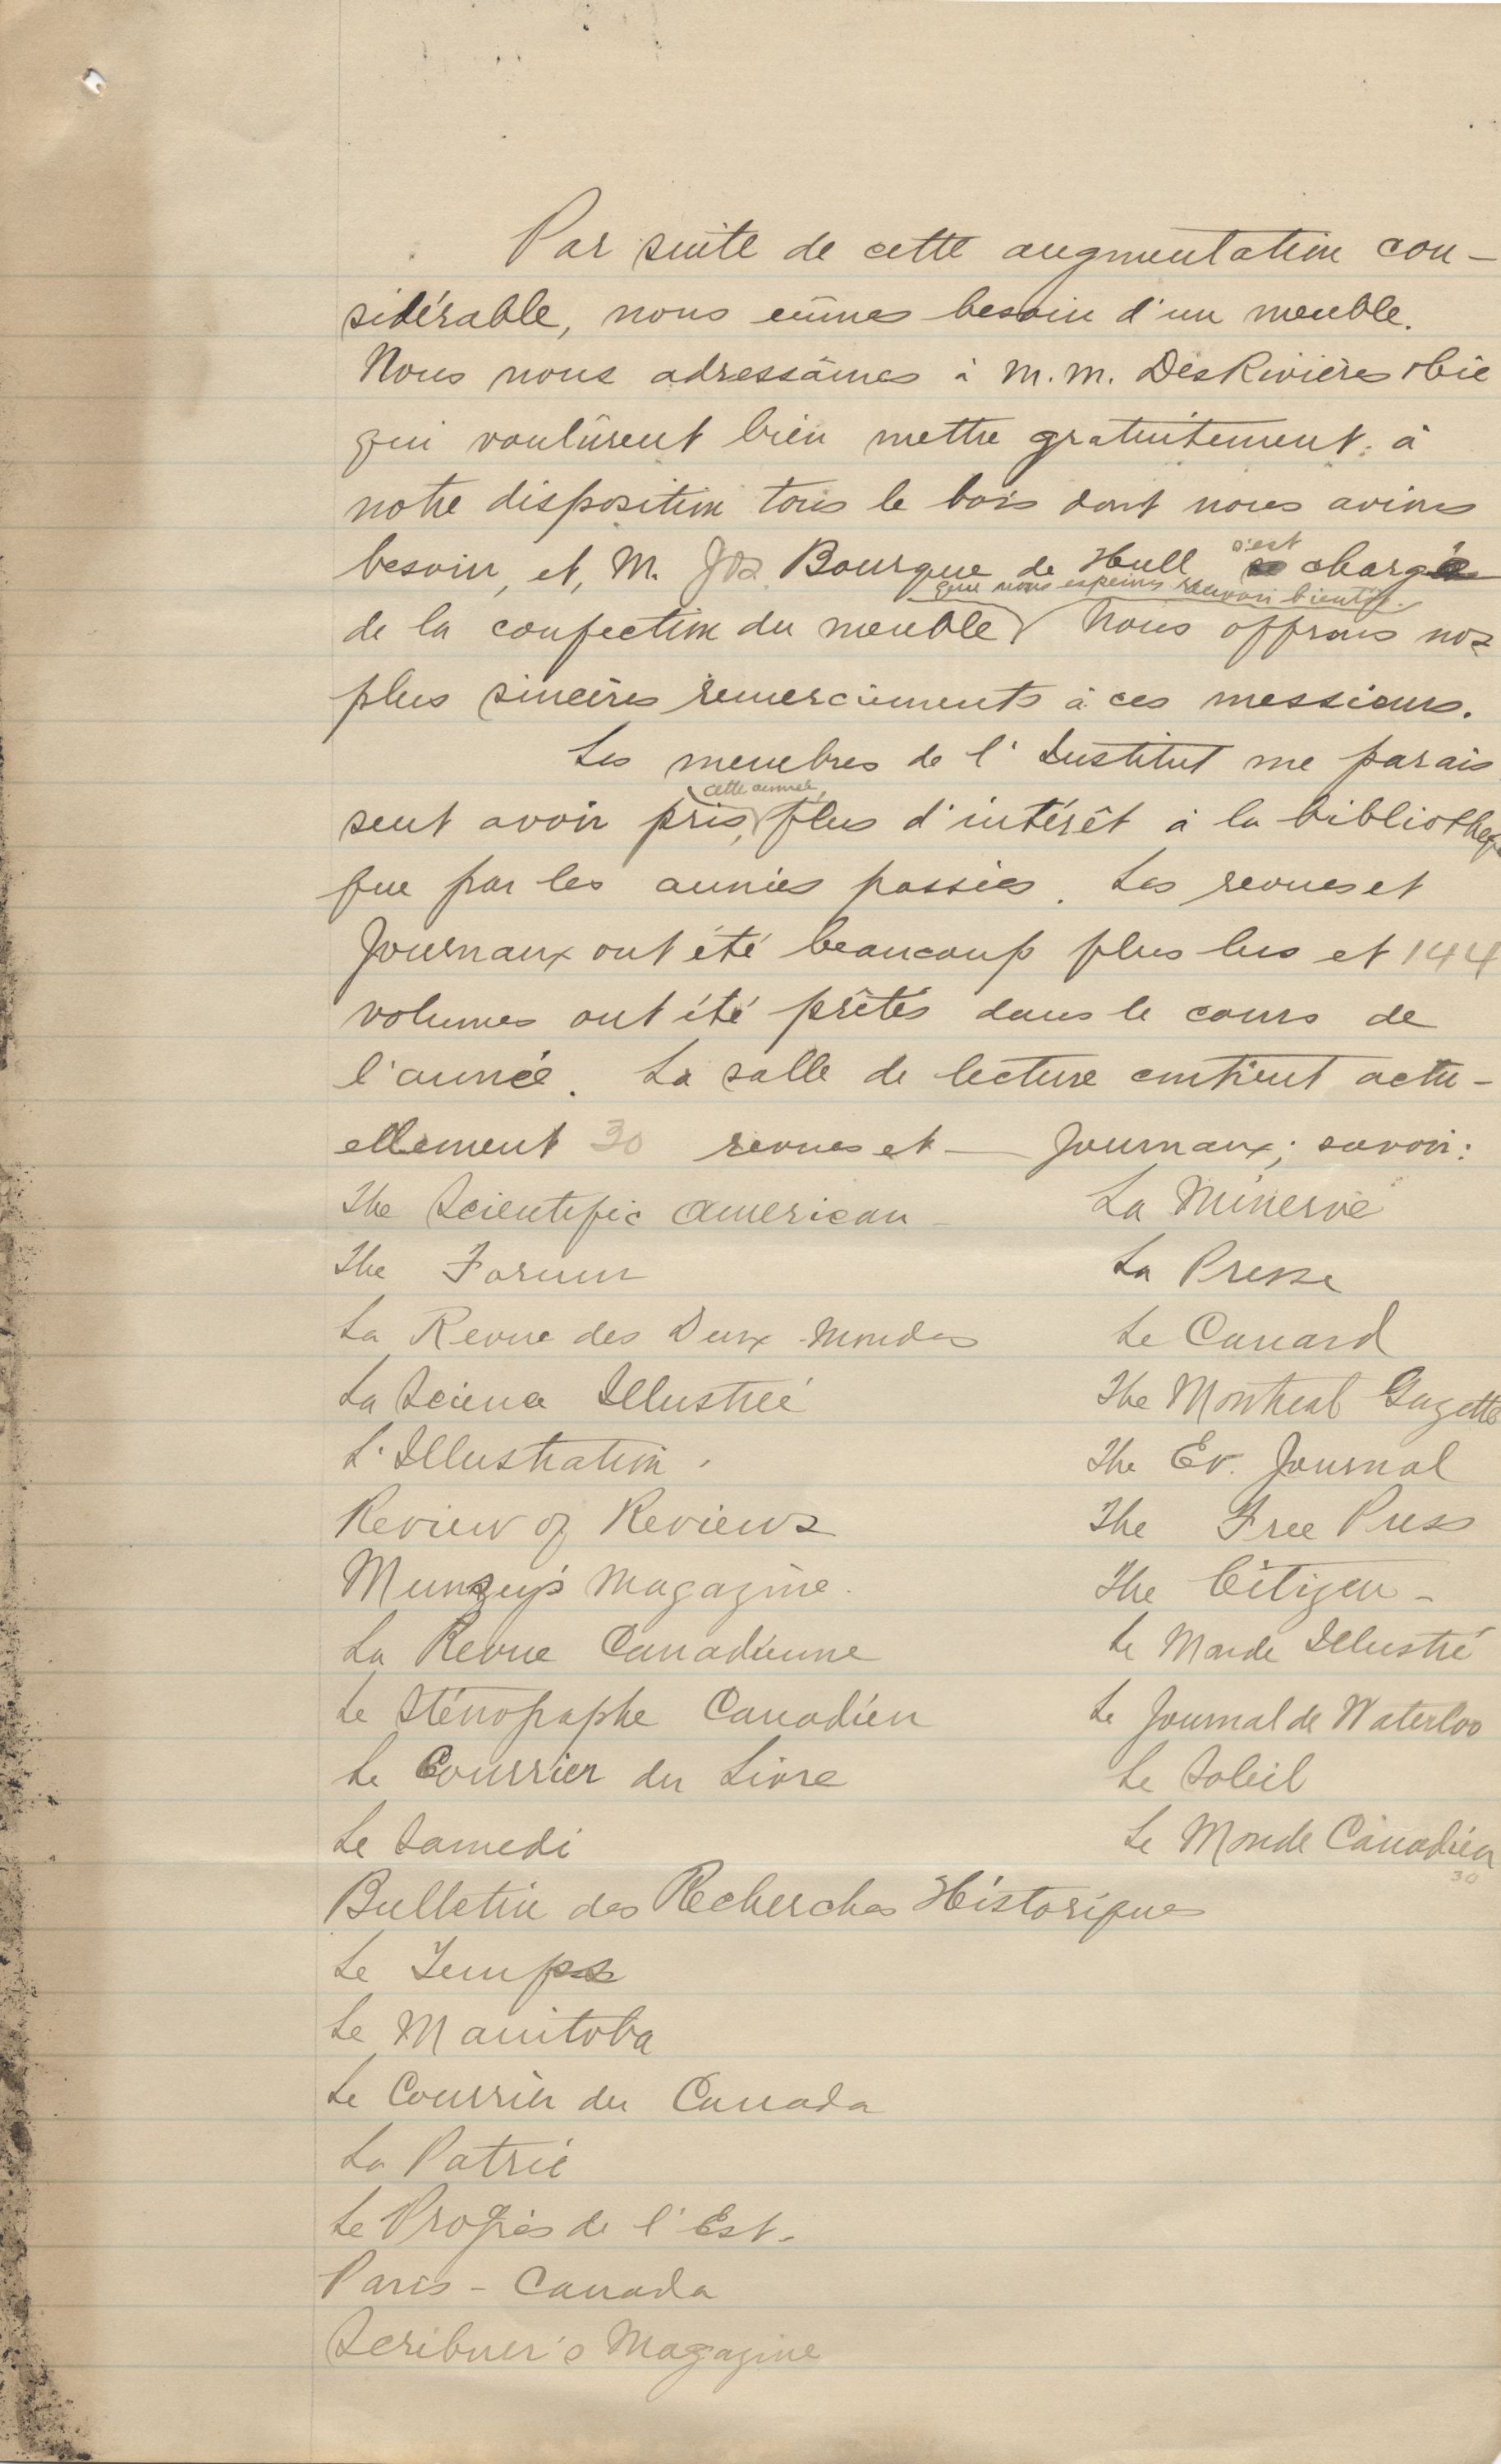 Par suite de cette augmentation con-
sidérable, nous eûmes besoin d'un meuble.
Nous nous adressâmes à M.M. DesRivières & Cie
qui voulûrent bien mettre gratuitement à
notre disposition tous le bois dont nous avions
s'est
besoin, et, M. Jos Bourque de Hull chargé
que nous espérons recevoir bientôt.
de la confection du meuble Nous offrons nos
plus sincères remerciements à ces messieurs.
Les membres de l'Institut me parais
cette année,
sent avoir pris, plus d'intérêt à la bibliothèque
que par les années passées. Les revues et
Journaux ont été beaucoup plus lus et 144
volumes ont été prêtés dans le cours de
l'année. La salle de lecture contient actu-
ellement 30 revues et — Journaux; savoir:
The Scientific American - La Minerve
The Forum La Presse
La Revue des Deux Mondes Le Canard
La Science Illustrée The Montreal Gazette
L'Illustration. The Ev. Journal
Review of Reviews The Free Press
Munsey's Magazine. The Citizen -
La Revue Canadienne Le Monde Illustré
Le Sténographe Canadien Le Journal de Waterloo
Le Courrier du Livre Le Soleil
Le Samedi Le Monde Canadien
30
Bulletin des Recherches Historiques
Le Temps
Le Manitoba
Le Courrier du Canada
La Patrie
Le Progrès de l'Est.
Paris - Canada
Scribner's Magazine